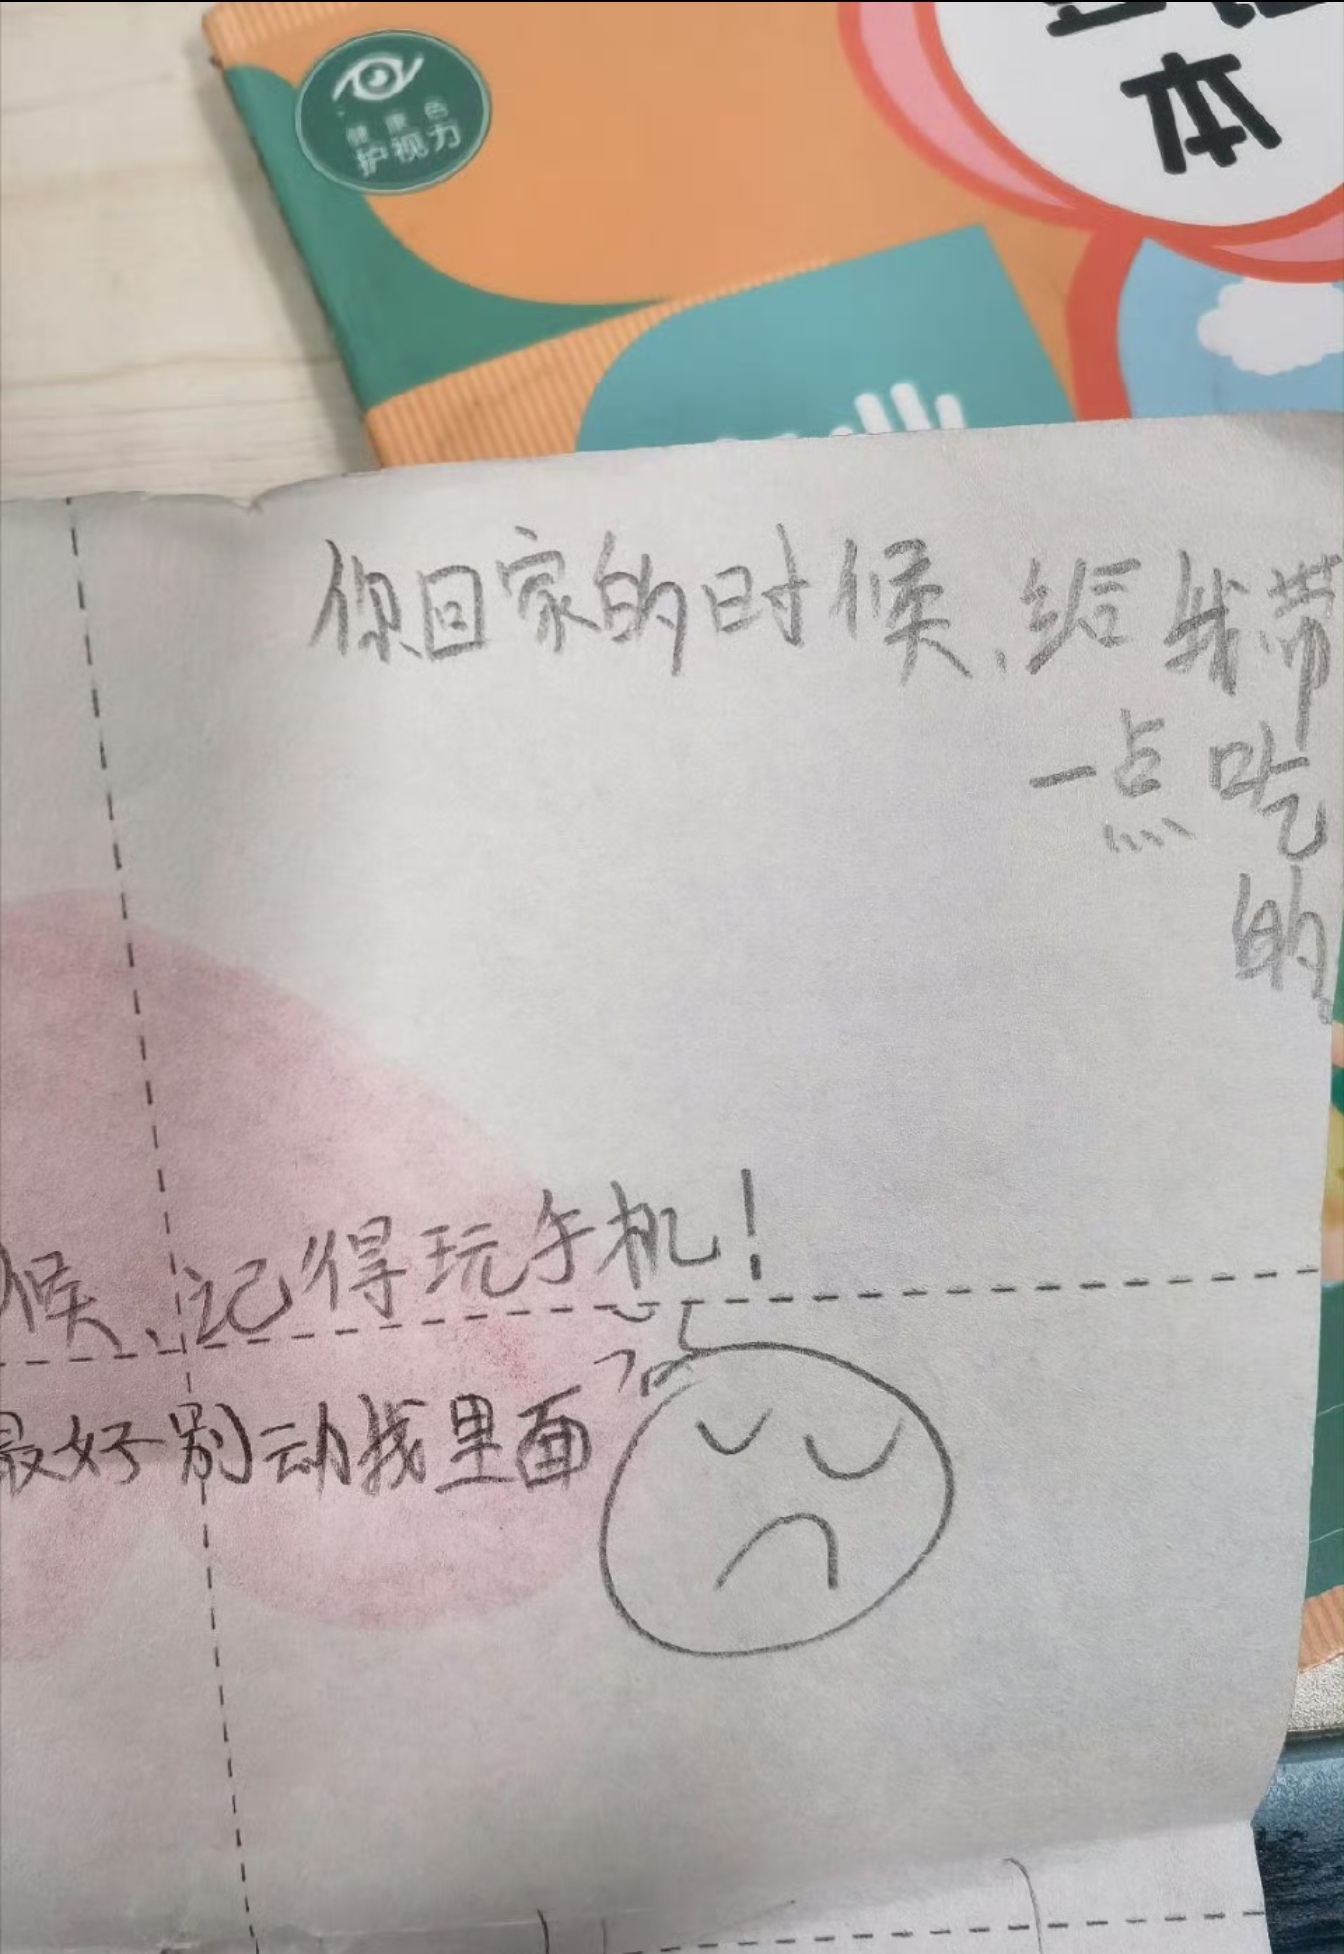 本
健康色
护视力
你回家的时候,给我带
一点吃
的
候,记得玩手机!
最好别动我里面